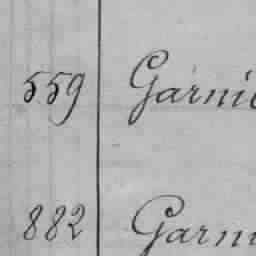 559 Garnie
882 Garni